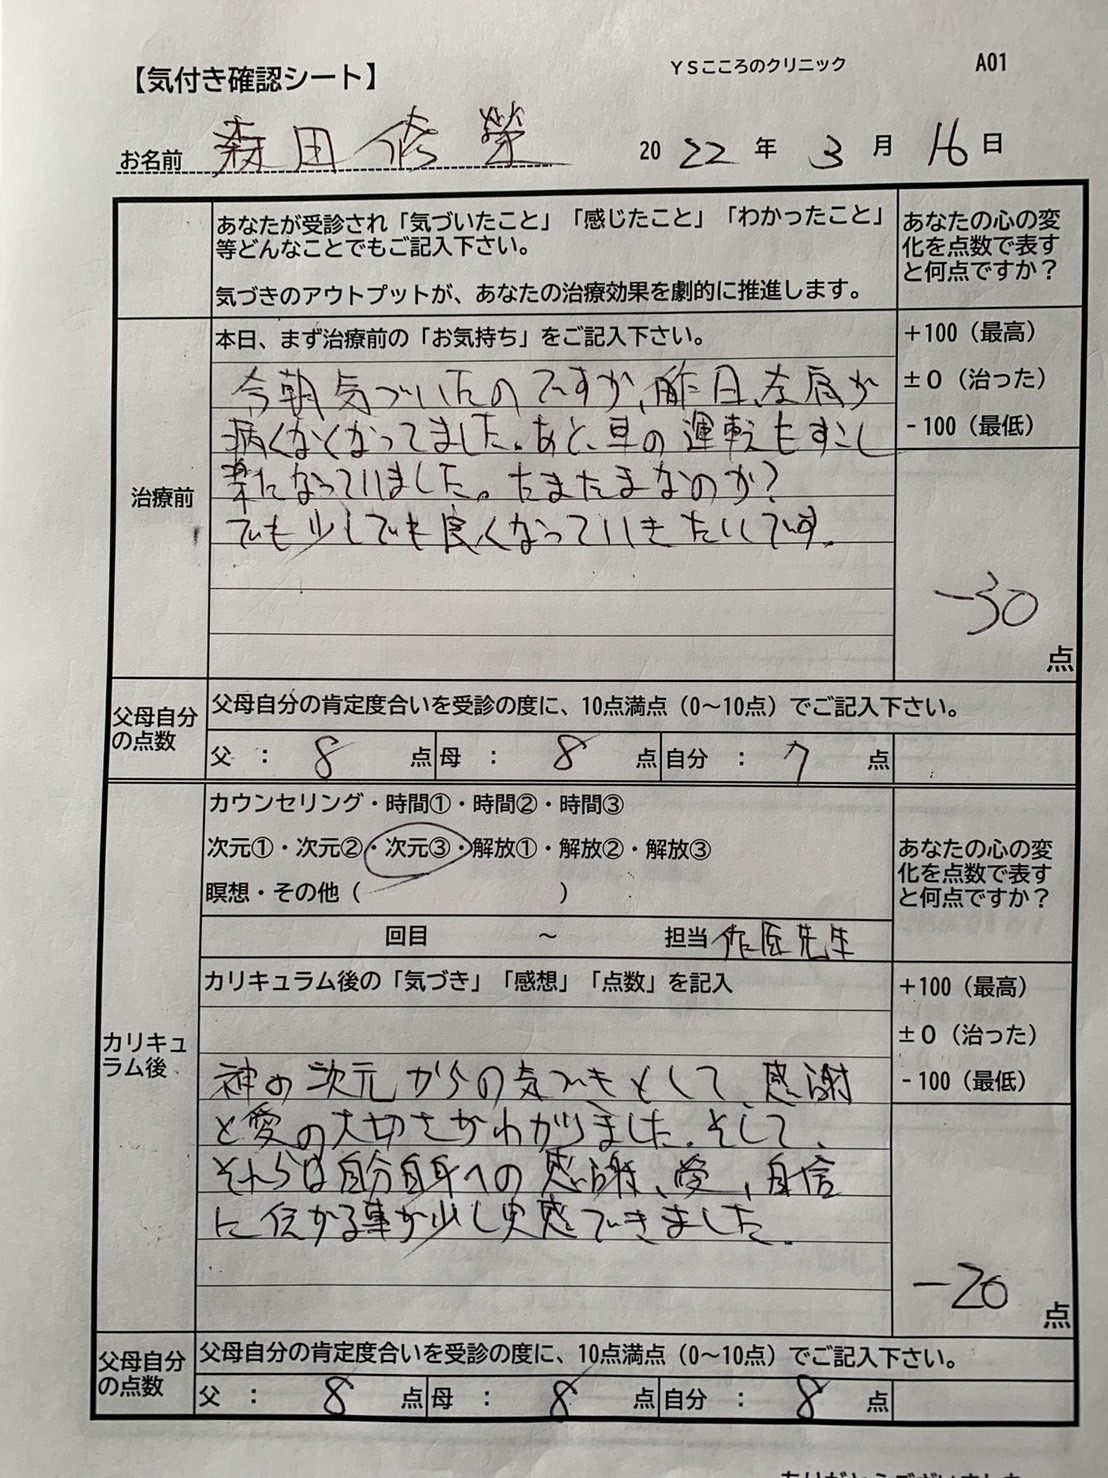 【気付き確認シート】
YSこころのクリニック
A01
お名前 森田修榮
2022年3月16日
あなたが受診され「気づいたこと」「感じたこと」「わかったこと」
等どんなことでもご記入下さい。
気づきのアウトプットが、あなたの治療効果を劇的に推進します。
あなたの心の変
化を点数で表す
と何点ですか？
治療前
本日、まず治療前の「お気持ち」をご記入下さい。
今朝気づいたのですが、昨日、左肩が
痛くなくなってました。あと、車の運転もすこし
楽になっていました。たまたまなのか?
でも少しでも良くなっていきたいです。
+100（最高）
±0（治った）
-100（最低）
-30
点
父母自分
の点数
父母自分の肯定度合いを受診の度に、10点満点（0～10点）でご記入下さい。
父 ： 8 点 母 ： 8 点 自分 ： 7 点
カリキュ
ラム後
カウンセリング・時間①・時間②・時間③
次元①・次元②・次元③・解放①・解放②・解放③
瞑想・その他（ ）
回目 ～ 担当 先生
あなたの心の変
化を点数で表す
と何点ですか？
カリキュラム後の「気づき」「感想」「点数」を記入
神の次元からの気づきとして、感謝
と愛の大切さがわかりました。そして、
それらは自分自身への感謝、愛、自信
に伝わる事が少し実感できました。
+100（最高）
±0（治った）
-100（最低）
-20
点
父母自分
の点数
父母自分の肯定度合いを受診の度に、10点満点（0～10点）でご記入下さい。
父 ： 8 点 母 ： 8 点 自分 ： 8 点